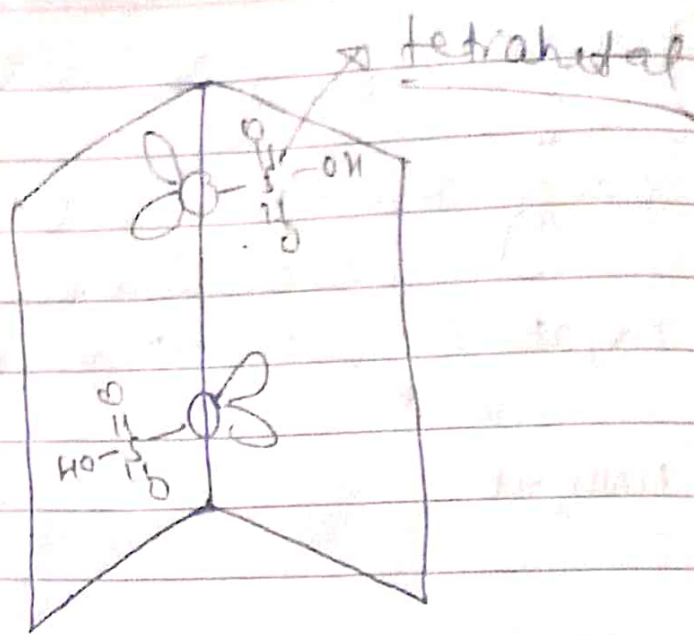 tetrahedal
O
S -OH
O
O
HO- S
O